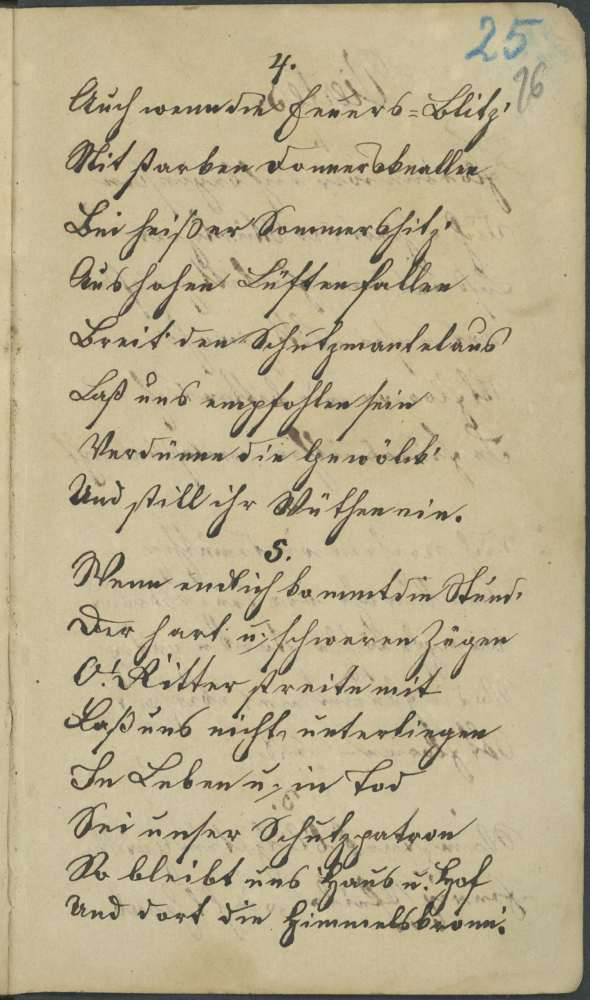 25
26
4.
Auch wenn die Feuers=Blitz'
Mit starken Donnersknallen
Bei heißer Sommershitz'
Aus hohen Lüften fallen
Breit' den Schutzmantel aus
Laß uns empfohlen sein
Verdünne die Gewölk'
Und still ihr Wüthen ein.
5.
Wenn endlich kommt die Stund'
Der hart u. schweren Zügen
O! Ritter streite mit
Laß uns nicht unterliegen
In Leben u. in Tod
Sei unser Schutzpatron
So bleibt uns Haus u. Hof
Und dort die Himmelskron'.